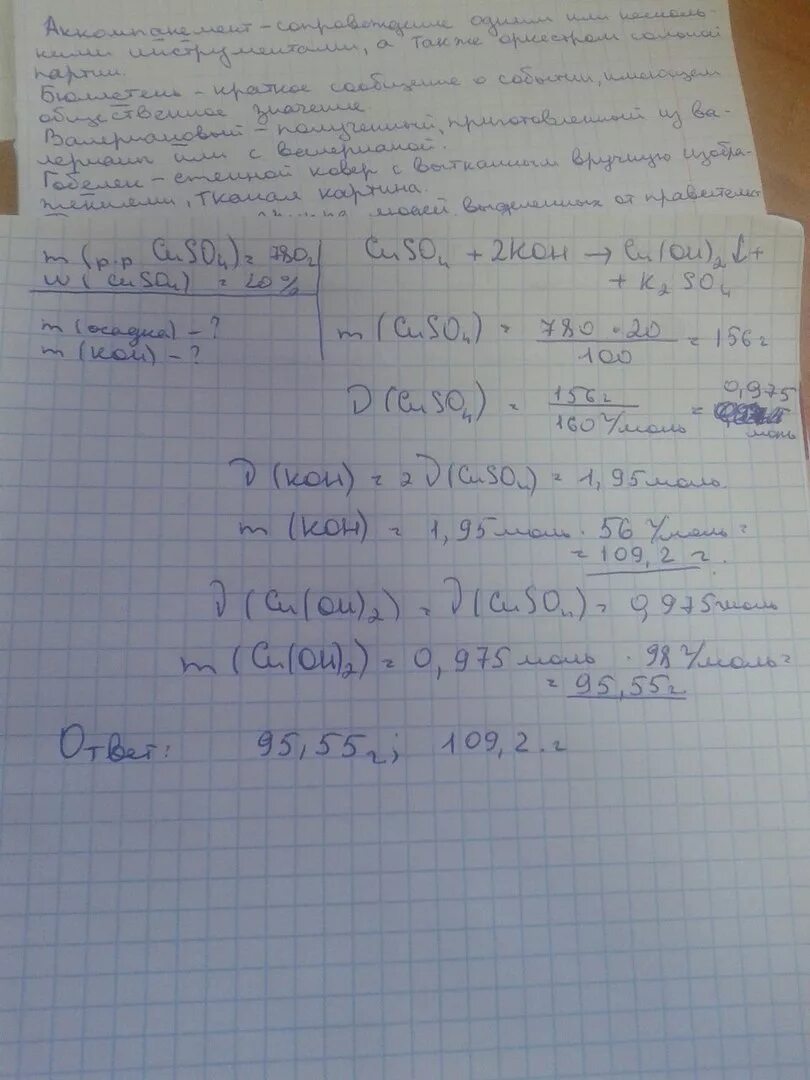 Аккомпанемент - сопровождение одним или несколь-
кими инструментами, а также оркестром сольной
партии.
Бюллетень - краткое сообщение о событии, имеющем
общественное значение.
Валериановый - полученный, приготовленный из ва-
лерианы или с валерианой.
Гобелен - стенной ковер с вытканным вручную изобра-
жениями, тканая картина.
людей, выделенных от правительст
m (р-р CuSO4) = 780г
w (CuSO4) = 20%
m (осадка) - ?
m (KOH) - ?
CuSO4 + 2KOH → Cu(OH)2↓ +
+ K2SO4
m (CuSO4) = 780 · 20 / 100 = 156г
ν (CuSO4) = 156г / 160 г/моль = 0,975 моль
ν (KOH) = 2ν (CuSO4) = 1,95 моль
m (KOH) = 1,95 моль · 56 г/моль =
= 109,2 г.
ν (Cu(OH)2) = ν (CuSO4) = 0,975 моль
m (Cu(OH)2) = 0,975 моль · 98 г/моль =
= 95,55г.
Ответ: 95,55г; 109,2.г